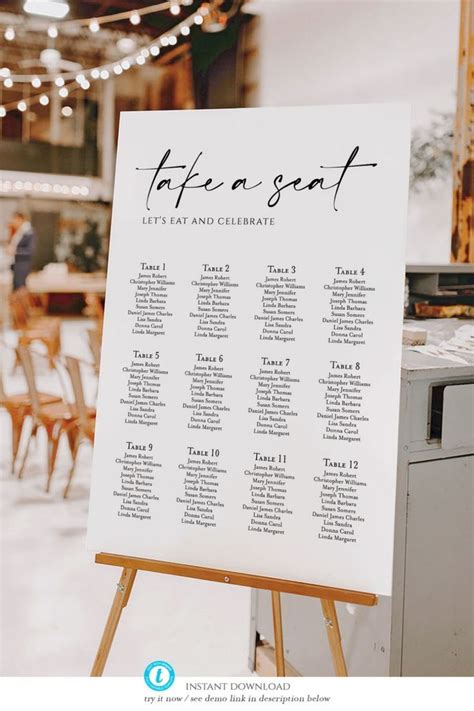 take a seat
LET'S EAT AND CELEBRATE
TABLE 1
James Robert
Christopher Williams
Mary Jennifer
Joseph Thomas
Linda Barbara
Susan Somers
Daniel James Charles
Lisa Sandra
Donna Carol
Linda Margaret
TABLE 2
James Robert
Christopher Williams
Mary Jennifer
Joseph Thomas
Linda Barbara
Susan Somers
Daniel James Charles
Lisa Sandra
Donna Carol
Linda Margaret
TABLE 3
James Robert
Christopher Williams
Mary Jennifer
Joseph Thomas
Linda Barbara
Susan Somers
Daniel James Charles
Lisa Sandra
Donna Carol
Linda Margaret
TABLE 4
James Robert
Christopher Williams
Mary Jennifer
Joseph Thomas
Linda Barbara
Susan Somers
Daniel James Charles
Lisa Sandra
Donna Carol
Linda Margaret
TABLE 5
James Robert
Christopher Williams
Mary Jennifer
Joseph Thomas
Linda Barbara
Susan Somers
Daniel James Charles
Lisa Sandra
Donna Carol
Linda Margaret
TABLE 6
James Robert
Christopher Williams
Mary Jennifer
Joseph Thomas
Linda Barbara
Susan Somers
Daniel James Charles
Lisa Sandra
Donna Carol
Linda Margaret
TABLE 7
James Robert
Christopher Williams
Mary Jennifer
Joseph Thomas
Linda Barbara
Susan Somers
Daniel James Charles
Lisa Sandra
Donna Carol
Linda Margaret
TABLE 8
James Robert
Christopher Williams
Mary Jennifer
Joseph Thomas
Linda Barbara
Susan Somers
Daniel James Charles
Lisa Sandra
Donna Carol
Linda Margaret
TABLE 9
James Robert
Christopher Williams
Mary Jennifer
Joseph Thomas
Linda Barbara
Susan Somers
Daniel James Charles
Lisa Sandra
Donna Carol
Linda Margaret
TABLE 10
James Robert
Christopher Williams
Mary Jennifer
Joseph Thomas
Linda Barbara
Susan Somers
Daniel James Charles
Lisa Sandra
Donna Carol
Linda Margaret
TABLE 11
James Robert
Christopher Williams
Mary Jennifer
Joseph Thomas
Linda Barbara
Susan Somers
Daniel James Charles
Lisa Sandra
Donna Carol
Linda Margaret
TABLE 12
James Robert
Christopher Williams
Mary Jennifer
Joseph Thomas
Linda Barbara
Susan Somers
Daniel James Charles
Lisa Sandra
Donna Carol
Linda Margaret
INSTANT DOWNLOAD
try it now / see demo link in description below